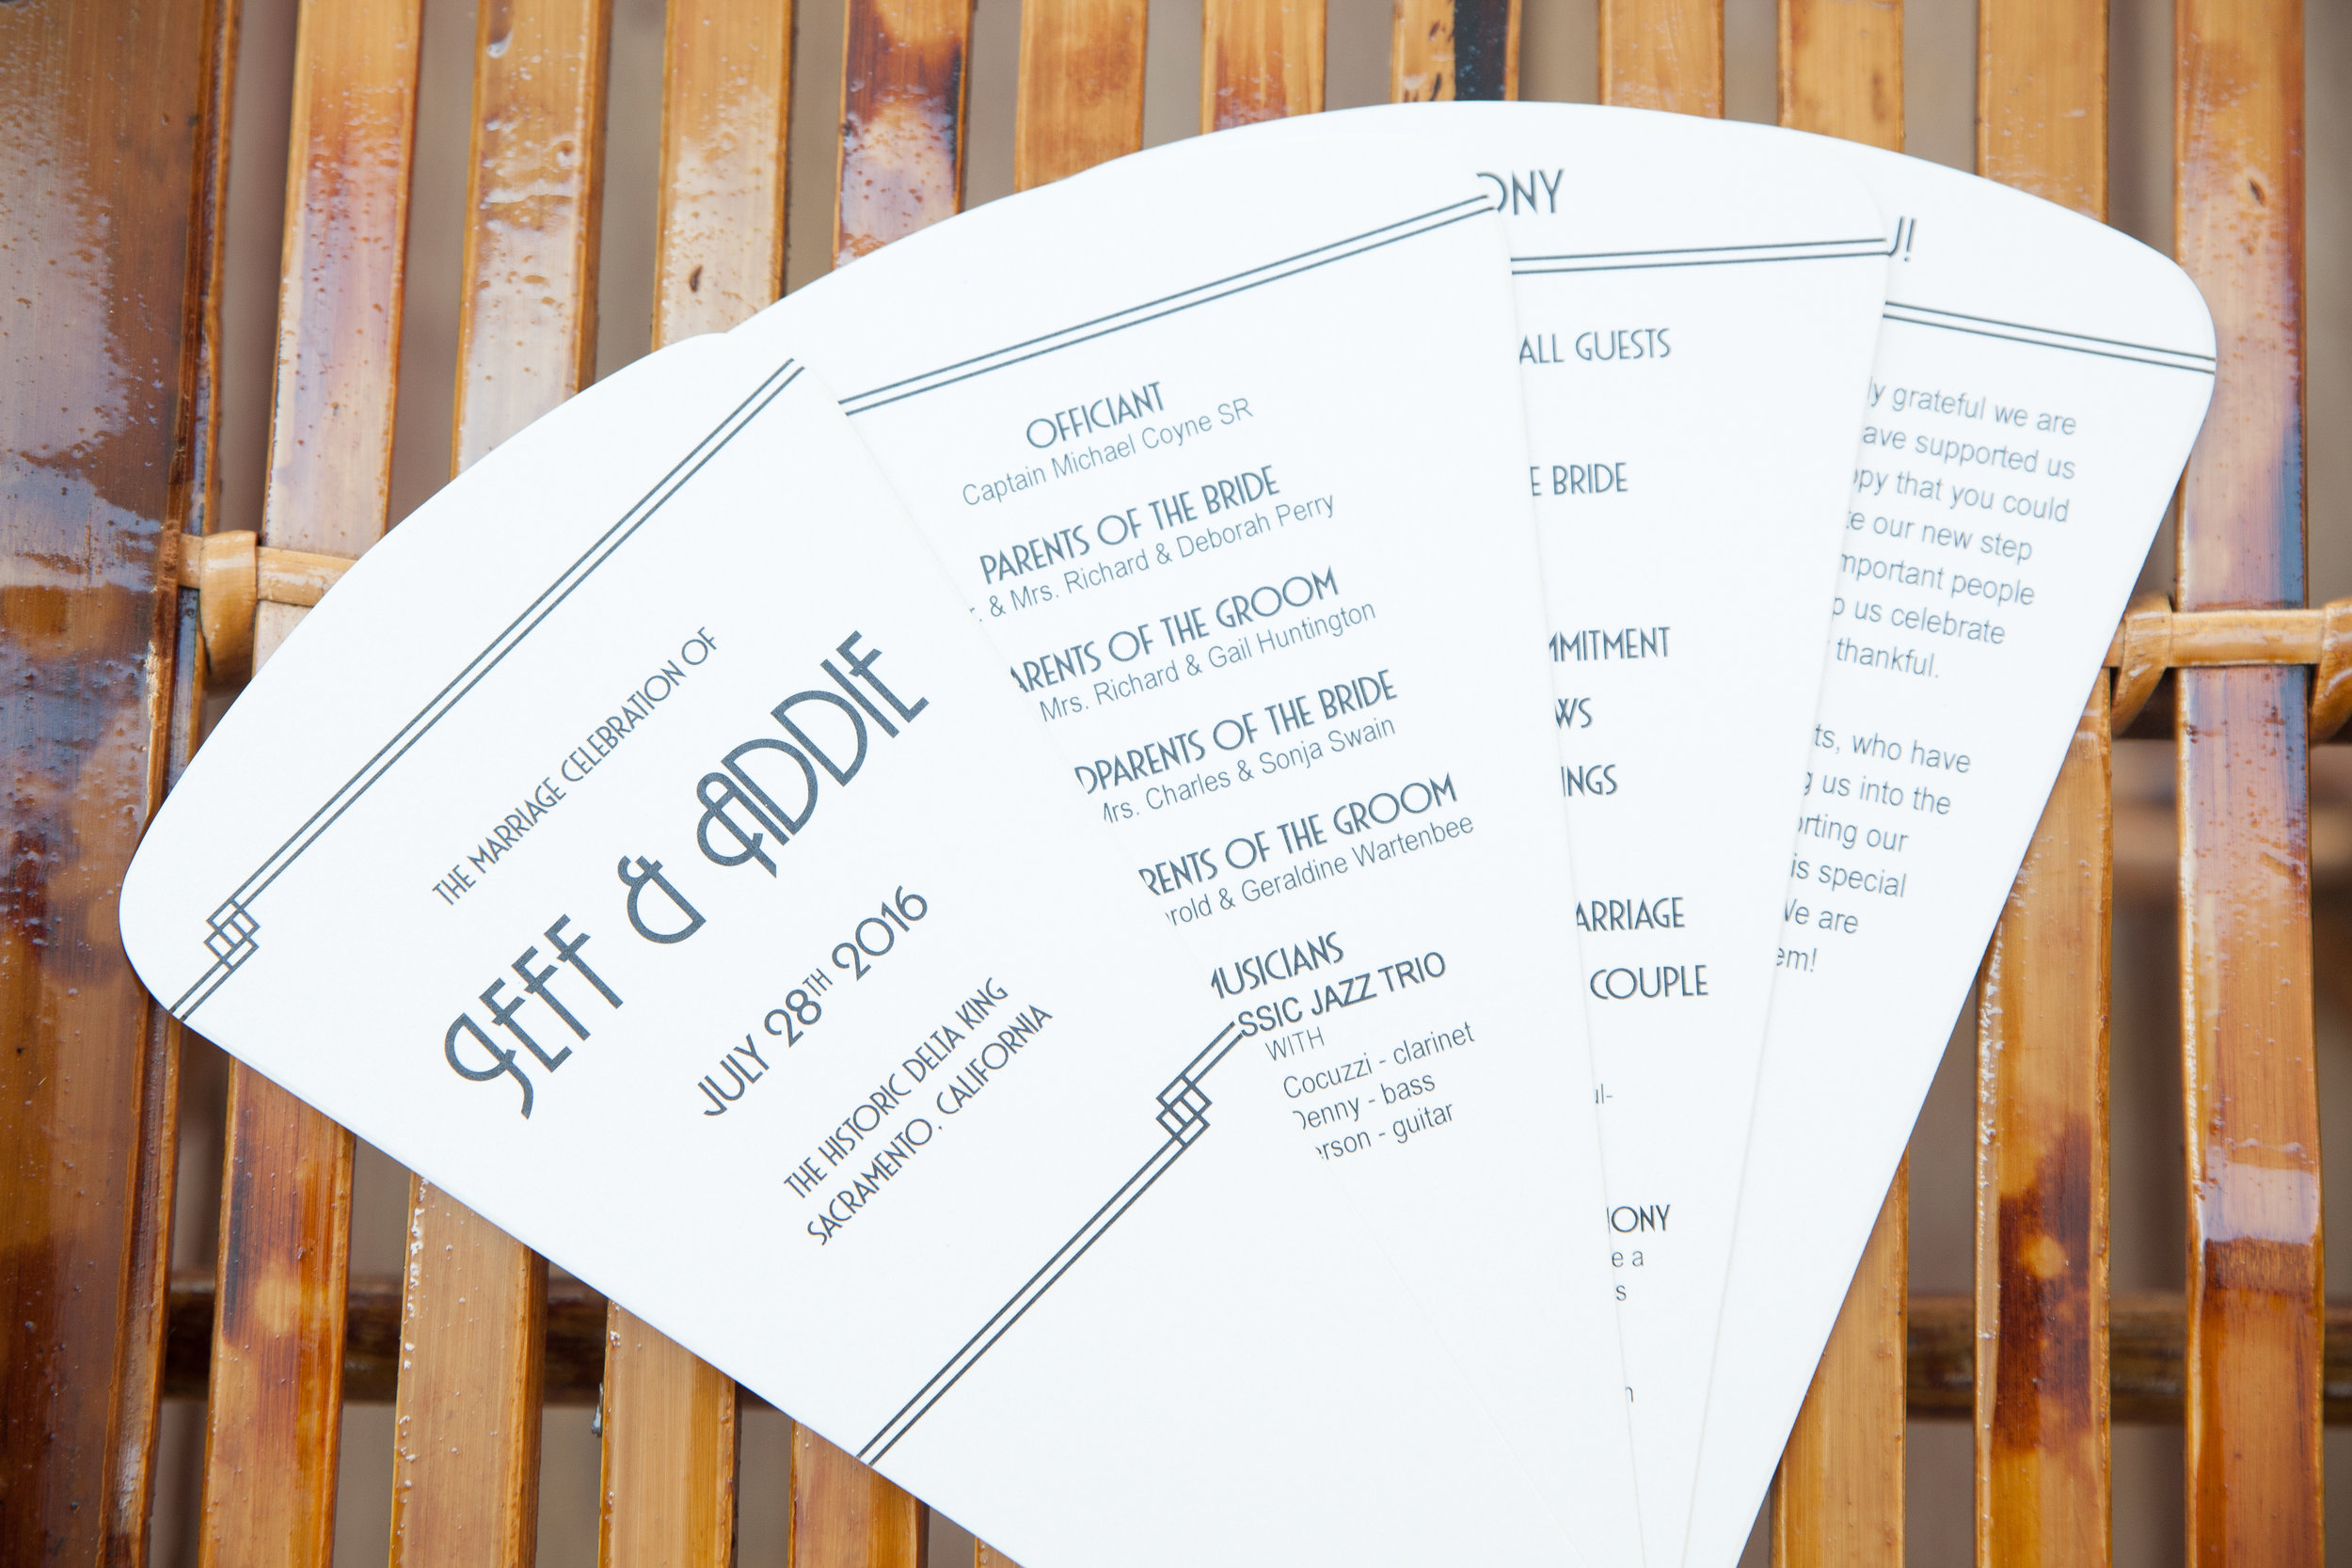 THE MARRIAGE CELEBRATION OF
JEFF & ADDIE
JULY 28TH 2016
THE HISTORIC DELTA KING
SACRAMENTO, CALIFORNIA
OFFICIANT
Captain Michael Coyne SR
PARENTS OF THE BRIDE
& Mrs. Richard & Deborah Perry
OF THE GROOM
Mrs. Richard & Gail Huntington
OF THE BRIDE
Charles & Sonja Swain
OF THE GROOM
& Geraldine Wartenbee
MUSICIANS
JAZZ TRIO
WITH
Cocuzzi - clarinet
Denny - bass
- guitar
ALL GUESTS
BRIDE
COUPLE
e a
grateful we are
supported us
that you could
our new step
people
us celebrate
thankful.
who have
us into the
our
special
We are